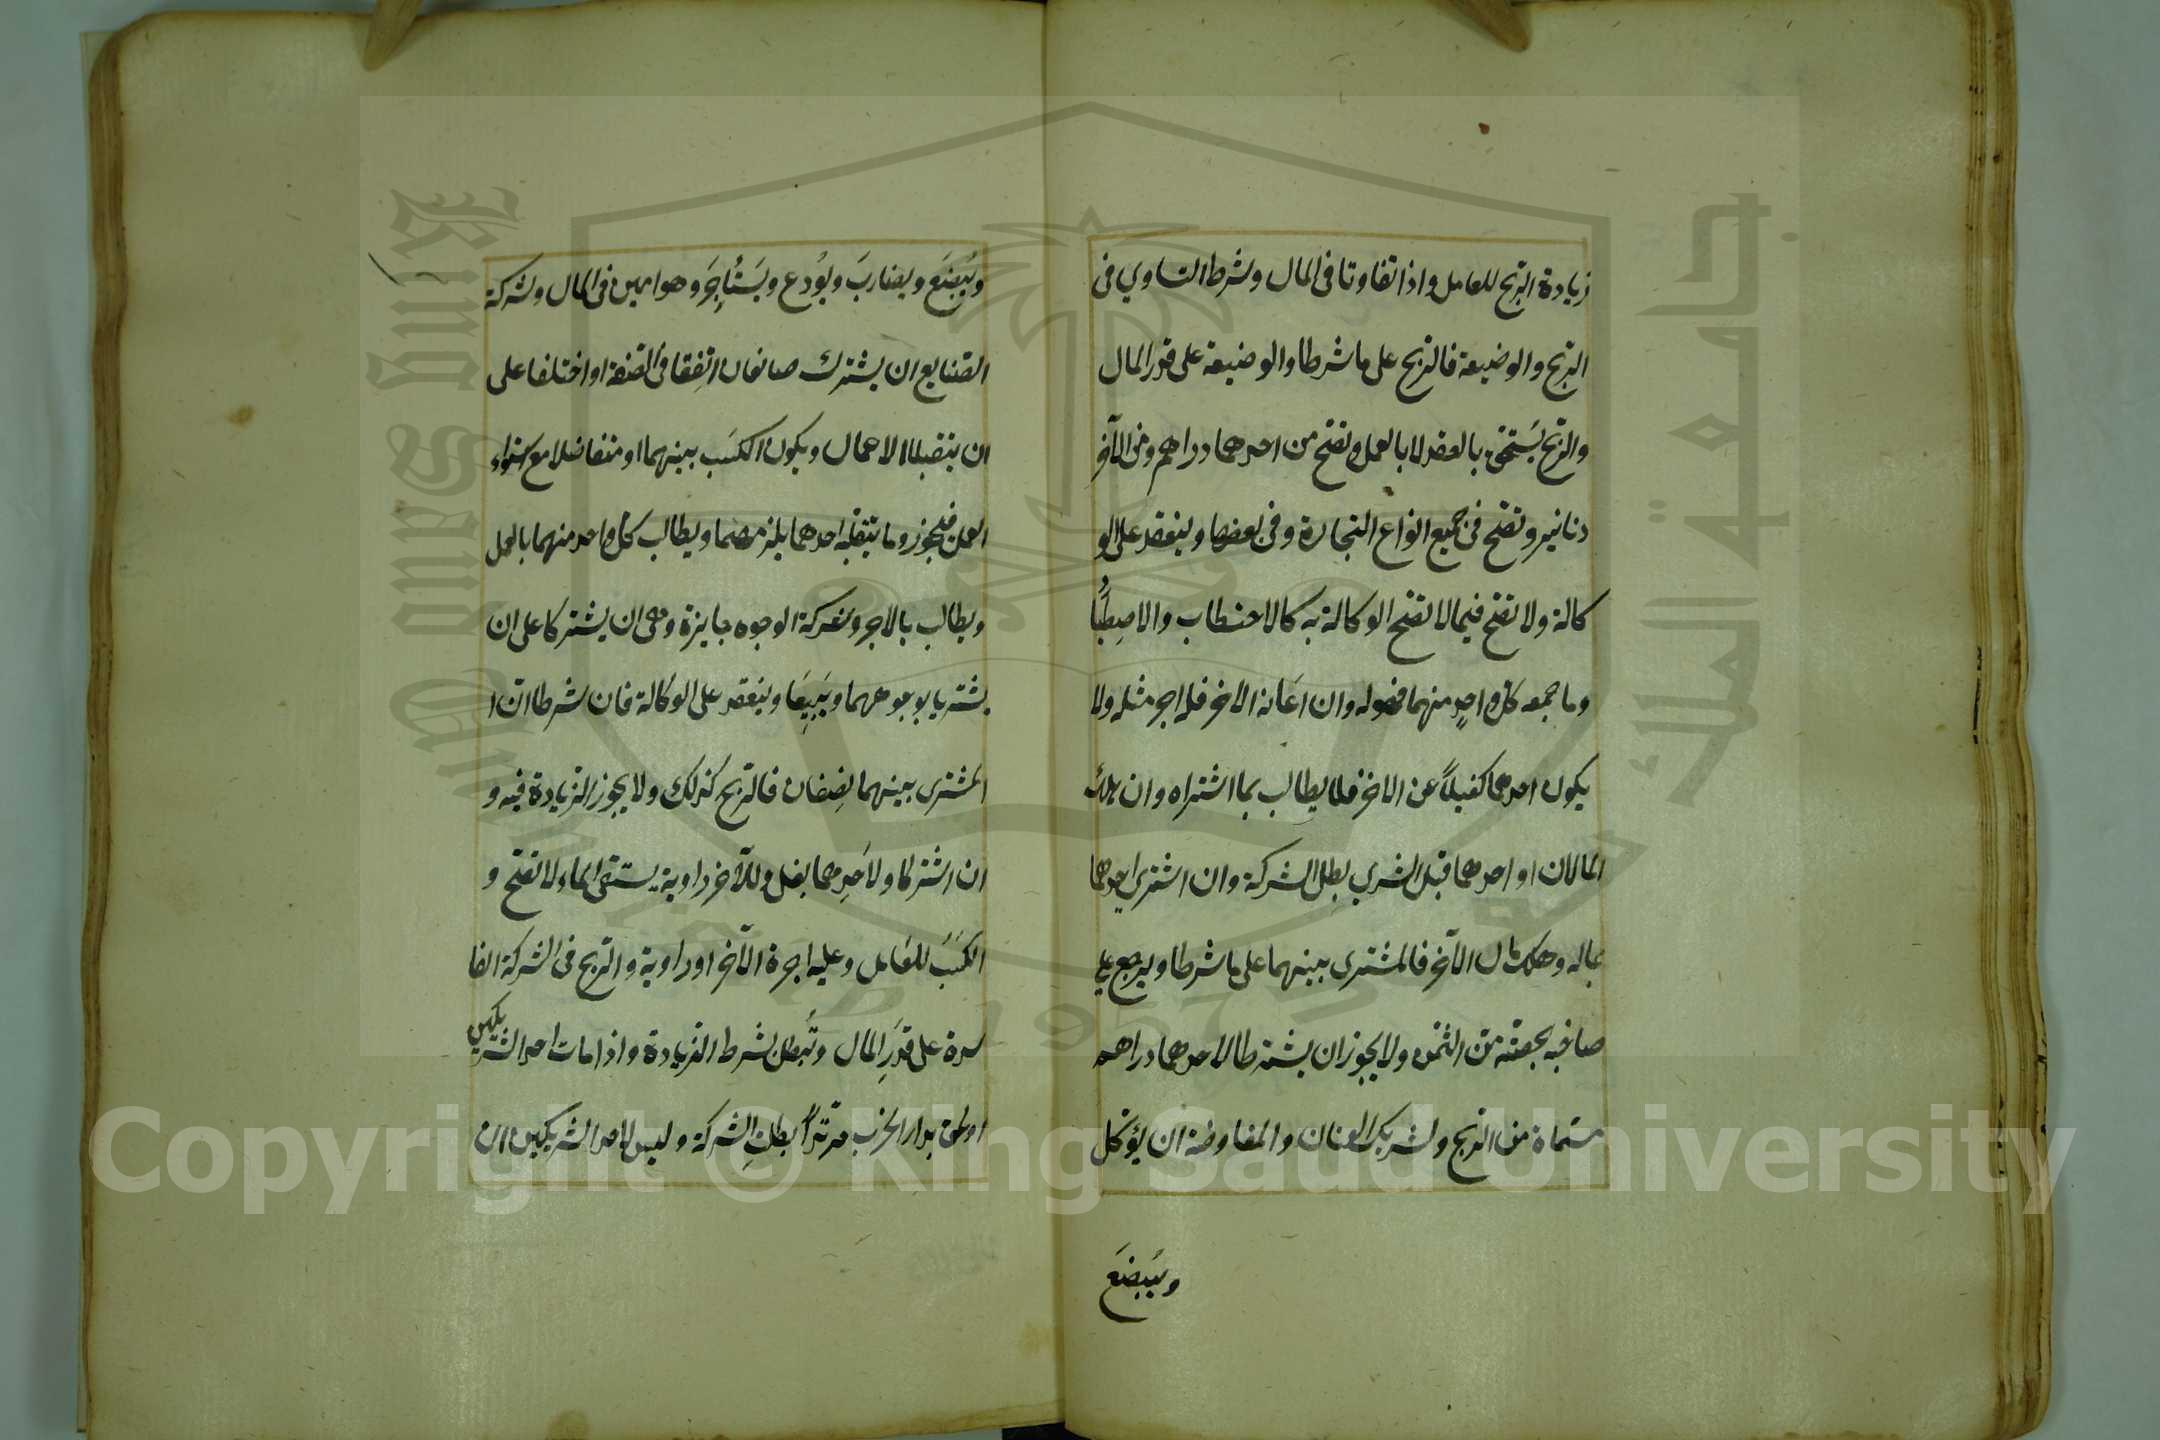 زيادة الربح للعامل واذا تفاوتا فى المال وشرطا التساوي فى
الربح والوضيعة فالربح على ما شرطا والوضيعة على قدر المال
والربح يستحق بالعقد لا بالعمل وتصح من احدهما دراهم ومن الآخر
دنانير وتصح فى جميع انواع التجارة وفى بعضها وينعقد على الو
كالة ولا تصح فيما لا تصح الوكالة به كالاحتطاب والاصطيا
وما جمعه كل واحدٍ منهما فهو له وان اعانه الاخر فله اجر مثله ولا
يكون احدهما كفيلاً عن الاخر فلا يطالب بما اشتراه وان هلك
المالان او احدهما قبل الشرى بطل الشركة وان اشترى احدهما
بماله وهلك مال الآخر فالمشترى بينهما على ما شرطا ويرجع على
صاحبه بحصته من الثمن ولا يجوز ان يشترطا لاحدهما دراهم
مسماة من الربح ولشريك العنان والمفاوضة ان يؤكل
ويُبضَع
ويُبضَع ويضاربَ ويُودع ويَستأجِرَ وهو امين فى المال وشركة
الصنايع ان يشترك صانعان اتفقا فى الصنعة او اختلفا على
ان يتقبلا الاعمال ويكون الكسَب بينهما او متفاضلا مع استواء
العمل فيجوز وما يتقبله احدهما يلزمهما ويطالب كل واحد منهما بالعمل
ويطالب بالاجر وشركة الوجوه جايزة وهى ان يشتركا على ان
يشتريا بوجوههما ويَبيعَا وينعقد على الوكالة فان شرطا انّ ا
المشترى بينهما نصِفان فالربح كذلك ولا يجوز الزيادة فيه و
ان اشتركا ولاَحدِهما بغل وللآخر راوية يستقى الماء لا تصح و
الكسَبُ للعامل وعليه اجرة الآخر او راوية والربح فى الشركة الفا
سدة على قدَرِ المال وتُبطل شرط الزيادة واذا مات احد الشريكين
او لحق بدار الحرب مرتدّاً بطلتِ الشركة وليس لاحد الشريكين ان
Copyright © King Saud University